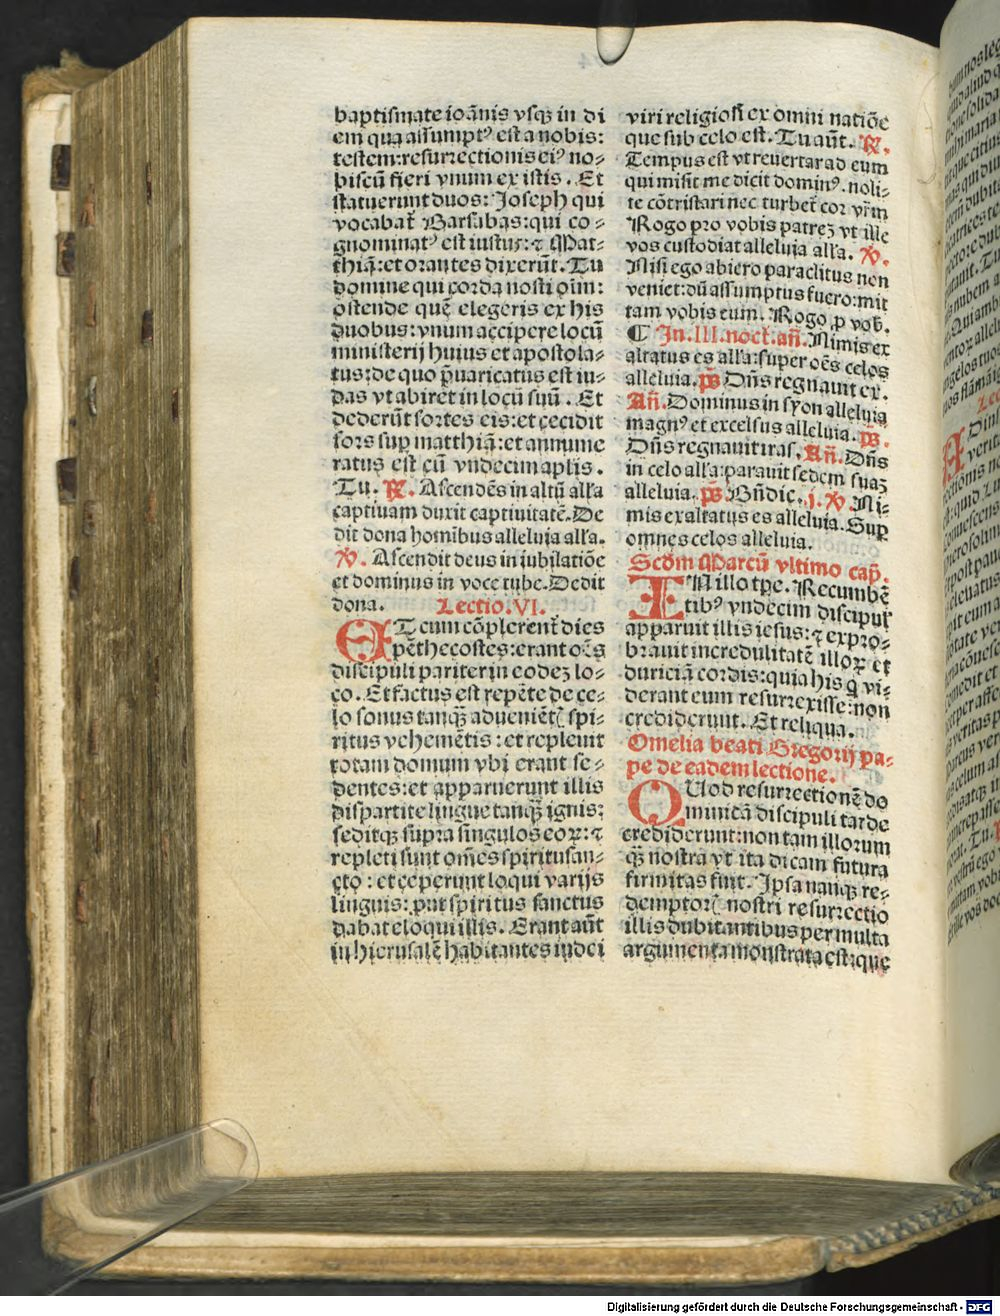 baptismate ioānis vsqꝫ in di
em qua assumptꝰ est a nobis:
testem: resurrectionis eiꝰ no-
biscū fieri vnum ex istis. Et
statuerunt duos: Joseph qui
vocabat᷑ Barsabas: qui co-
gnominatꝰ est iustus: ⁊ Mat-
thiā: et orantes dixerūt. Tu
domine qui corda nosti oīm:
ostende quē elegeris ex his
duobus: vnum accipere locū
ministerij huius et apostola-
tus: de quo p̄uaricatus est iu-
das vt abiret in locū suū. Et
dederūt sortes eis: et cecidit
sors suꝑ matthiā: et annume
ratus est cū vndecim aplis.
Tu. ℟. Ascendēs in altū alľa
captiuam duxit captiuitatē. De
dit dona hominibus alleluia alľa.
℣. Ascendit deus in iubilatiōe
et dominus in voce tube. Dedit
dona. Lectio. VI.
ET cum cōplerent᷑ dies
pēthecostes: erant oēs
discipuli pariter in codeꝫ lo-
co. Et factus est repēte de ce-
lo sonus tanqꝫ̄ adueniēt᷑ spi-
ritus vehemētis: et repleuit
totam domum vbi erant se-
dentes: et apparuerunt illis
dispartite lingue tanqꝫ̄ ignis:
seditqꝫ supra singulos eoꝝ: ⁊
repleti sunt om̄es spiritu san-
cto: et ceperunt loqui varijs
linguis: put spiritus sanctus
dabat eloqui illis. Erant aūt
in hierusalē habitantes iudei
viri religiosi ex omni natiōe
que sub celo est. Tu aūt. ℟.
Tempus est vt reuertar ad eum
qui misit me dicit dominꝰ. noli-
te cōtristari nec turbet᷑ cor vr̄m
Rogo pro vobis patreꝫ vt ille
vos custodiat alleluia alľa. ℣.
Nisi ego abiero paraclitus non
veniet: dū assumptus fuero: mit
tam vobis eum. Rogo ꝓ vob̄.
¶ In. III. noct᷑. añ. Nimis ex
altatus es alľa: super oēs celos
alleluia. p̄s Dn̄s regnauit ex.
Añ. Dominus in syon alleluia
magnꝰ et excelsus alleluia. p̄s.
Dn̄s regnauit iras. Añ. Dn̄s
in celo alľa: parauit sedem suaꝫ
alleluia. p̄s. Bn̄dic. j. ℣. Ni-
mis exaltatus es alleluia. Suꝑ
omnes celos alleluia.
Scd̄m Marcū vltimo cap̄.
IN illo tp̄e. Recumbē
tibꝰ vndecim discipuł
apparuit illis iesus: ⁊ expro-
brauit incredulitatē illoꝝ et
duriciā cordis: quia his q̄ vi-
derant eum resurrexisse: non
crediderunt. Et reliqua.
Omelia beati Gregorij pa-
pe de eadem lectione.
QUod resurrectionē do
minicā discipuli tarde
crediderunt: non tam illorum
qꝫ̄ nostra vt ita dicam futura
firmitas fuit. Ipsa nanqꝫ re-
demptor᷑ nostri resurrectio
illis dubitantibus per multa
argumenta monstrata est: que
Digitalisierung gefördert durch die Deutsche Forschungsgemeinschaft - DFG